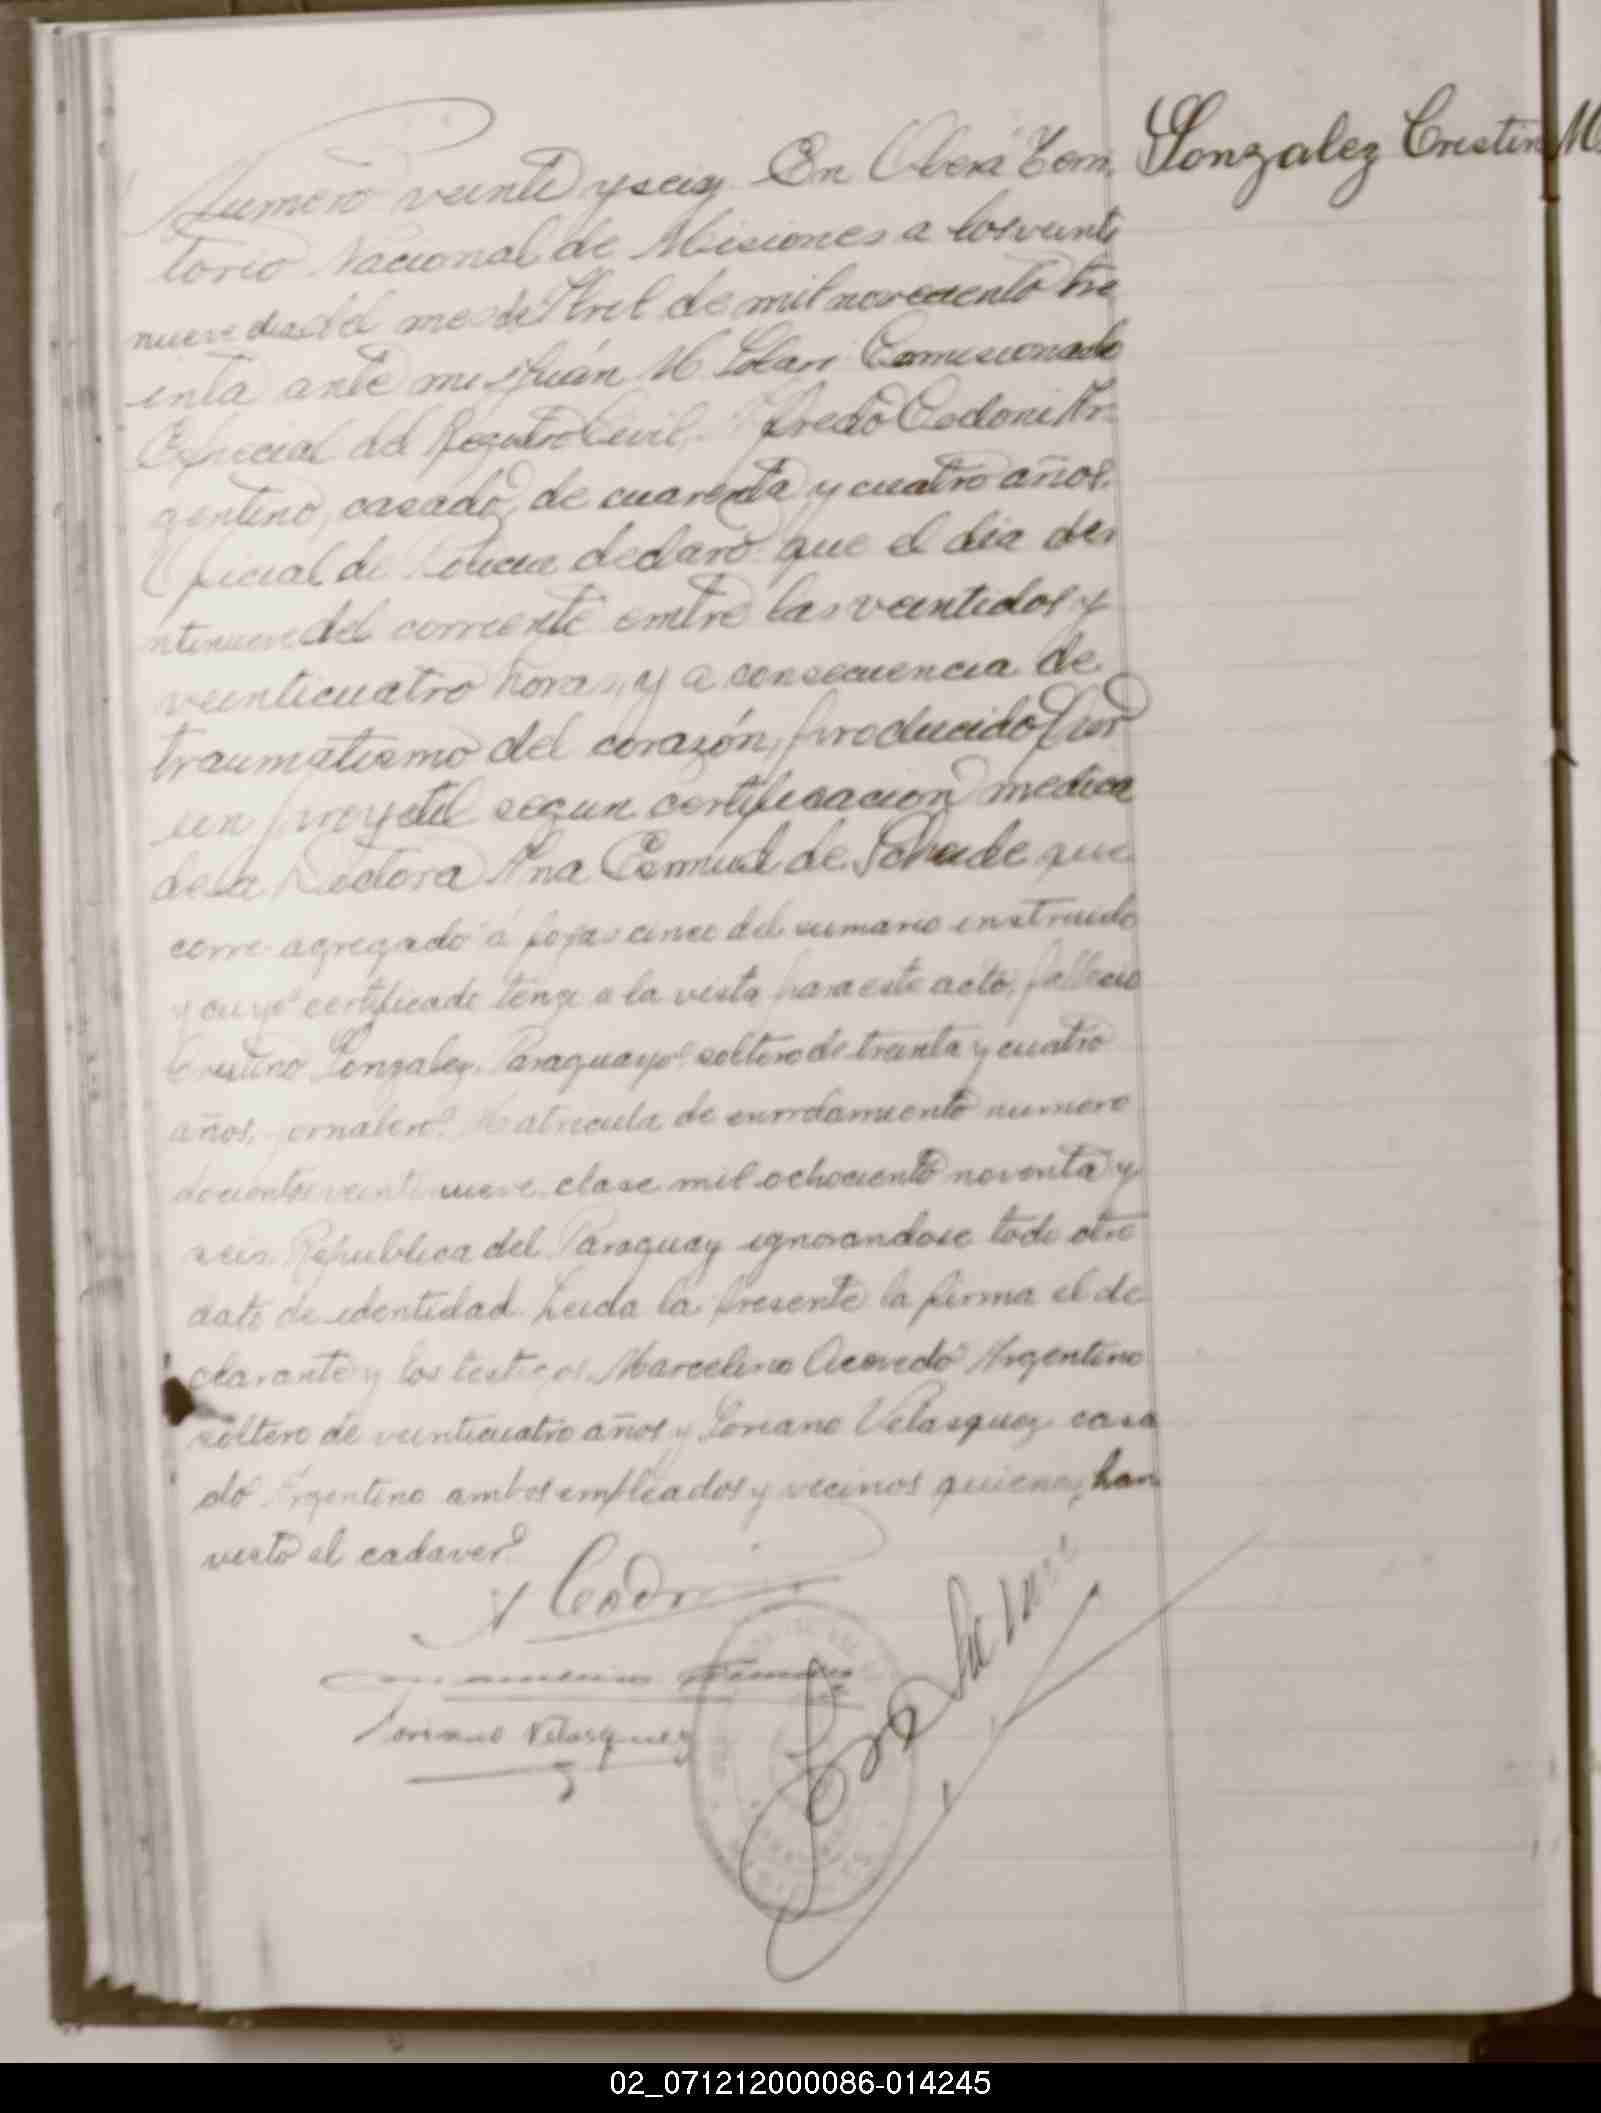 Gonzalez Cristin M.
Numero veinte y seis En Obera Terri
torio Nacional de Misiones a los veinti
nueve dias del mes de Abril de mil novecento tre
inta ante mi Juán M. Solari Comisionado
Especial del Registro Civil, Alfredo Codoni Ar-
gentino, casado, de cuarenta y cuatro años,
Oficial de Policia declaró que el dia vei
ntinueve del corriente entre las veintidos y
veinticuatro horas, y a consecuencia de
traumatismo del corazón, producido por
un proyetil segun certificacion medica
de la Doctora Ana de que
corre agregado á fojas cinco del sumario instruido
y cuyo certificado tengo a la vista para este acto, fallecio
Cristino Gonzalez, Paraguayo soltero de treinta y cuatro
años, jornalero. Matricula de enrrolamiento numero
docientos veintinueve clase mil ochociento noventa y
seis Republica del Paraguay ignorandose todo otro
dato de identidad. Leida la presente la firma el de
clarante y los testigos, Marcelino Acevedo Argentino
soltero de veinticuatro años y Soriano Velasquez casa
do Argentino ambos empleados y vecinos quienes han
visto el cadaver.
A Codoni
Soriano Velasquez
02_071212000086-014245